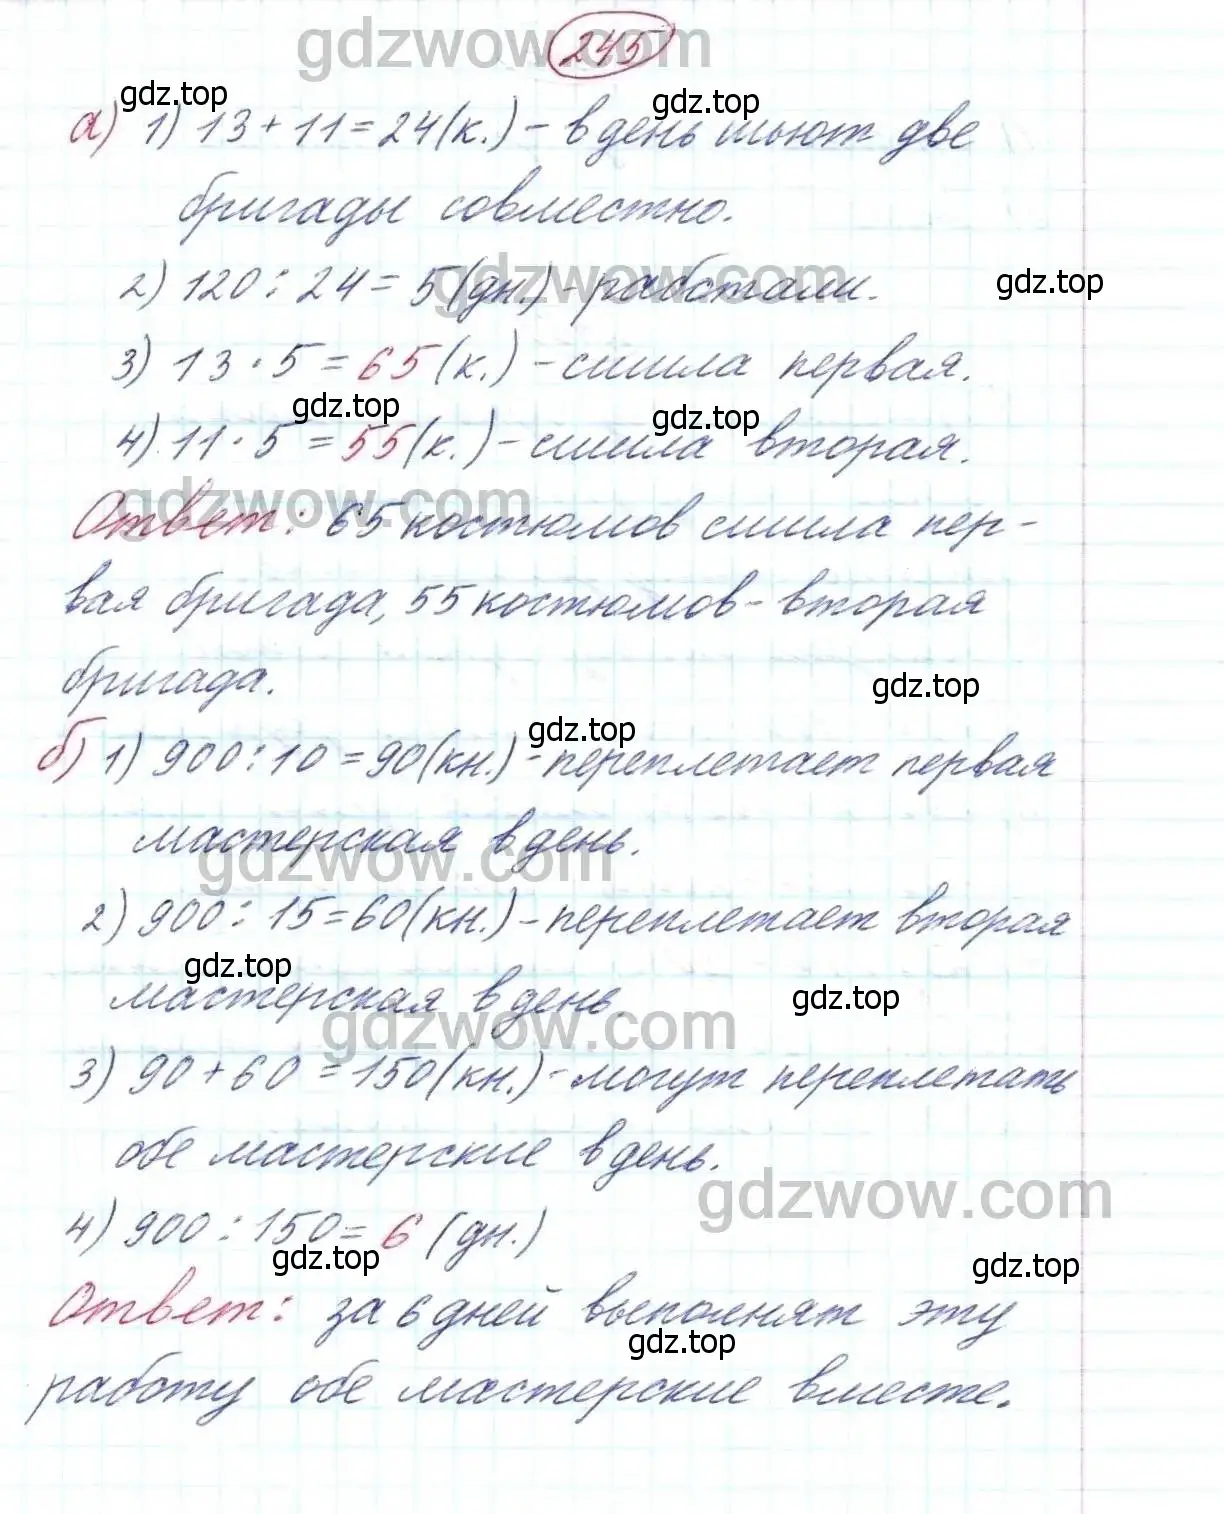 gdzwow.com
245
gdz.top
gdz.top
а) 1) 13 + 11 = 24 (к.) - в день шьют две
бригады совместно.
gdzwow.com
2) 120 : 24 = 5 (дн.) - работали.
gdz.top
3) 13 · 5 = 65 (к.) - сшила первая.
gdz.top
gdz.top
4) 11 · 5 = 55 (к.) - сшила вторая.
gdzwow.com
Ответ: 65 костюмов сшила пер-
вая бригада, 55 костюмов - вторая
бригада.
gdz.top
gdz.top
б) 1) 900 : 10 = 90 (кн.) - переплетает первая
мастерская в день.
gdzwow.com
2) 900 : 15 = 60 (кн.) - переплетает вторая
gdz.top
мастерская в день.
gdz.top
gdzwow.com
3) 90 + 60 = 150 (кн.) - могут переплетать
обе мастерские в день.
gdzwow.com
4) 900 : 150 = 6 (дн.)
gdz.top
gdz.top
Ответ: за 6 дней выполнят эту
gdz.top
работу обе мастерские вместе.